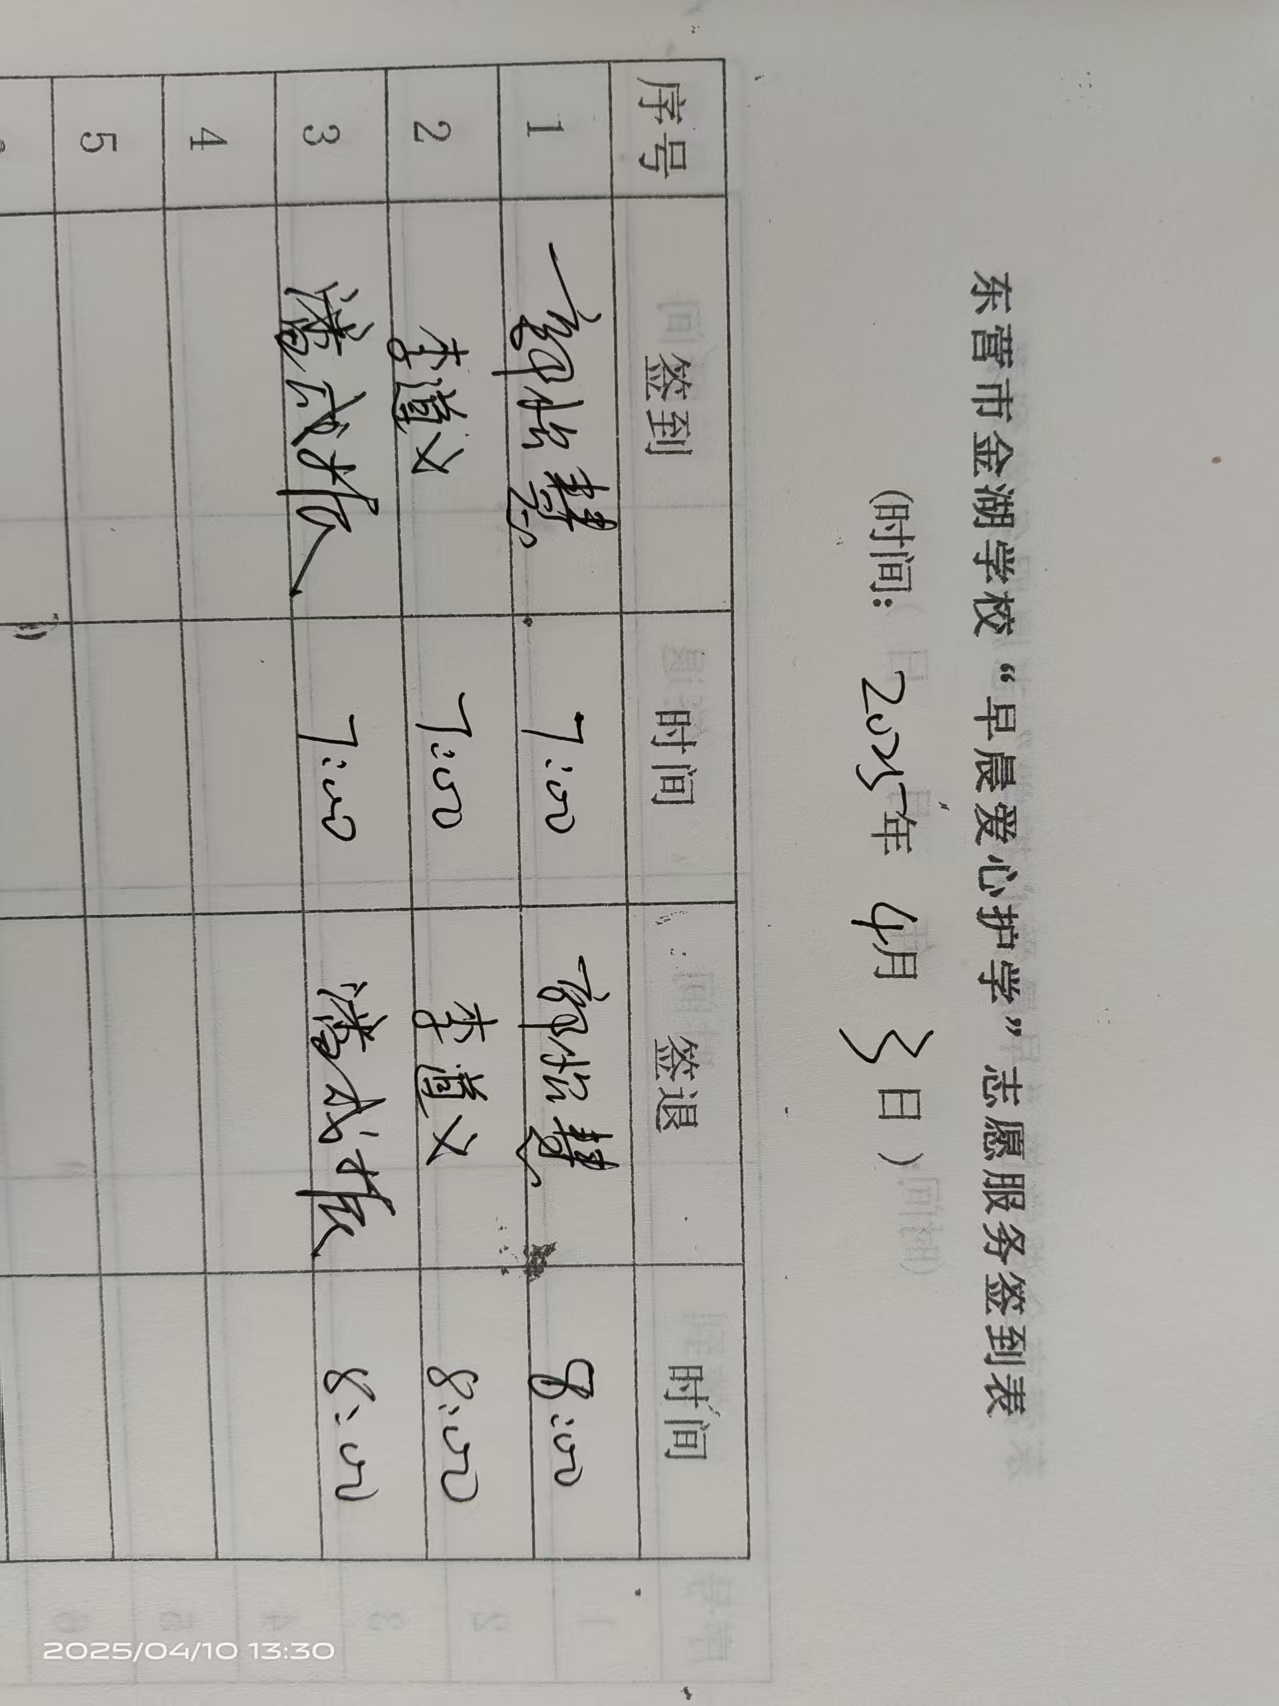 东营市金湖学校“早晨爱心护学”志愿服务签到表
(时间: 2025年 4月 3日)
序号 签到 时间 签退 时间
1 郭怡慧 7:00 郭怡慧 8:00
2 李道义 7:00 李道义 8:00
3 潘成振 7:00 潘成振 8:00
4
5
2025/04/10 13:30